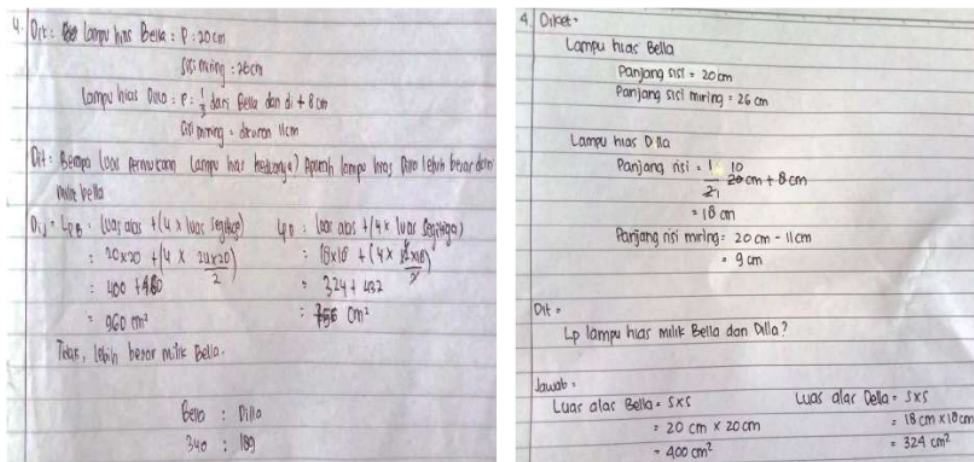 4. Dit: Lampu hias Bella : P : 20 cm
Sisi miring : 26 cm
Lampu hias Dillo : P : 1/3 dari Bella dan di + 8 cm
Sisi miring : dikuran 11 cm
Dit : Berapa luas permukaan lampu hias keduanya? Apakah lampu hias Dillo lebih besar dari
milik bella
Dij = LPB : luas alas + (4 x luas segitiga)
: 20x20 + (4 x 24x20/2)
: 400 + 480
: 960 cm²
Tidak, lebih besar milik Bella.
LPD : luas alas + (4 x luas segitiga)
: 18x18 + (4 x
: 324 + 432
: 756 cm²
Bella : Dillo
340 : 189
4. Diket :
Lampu hias Bella
Panjang sisi = 20 cm
Panjang sisi miring = 26 cm
Lampu hias Dilla
Panjang sisi = 1/2 20 cm + 8 cm
10
1
= 18 cm
Panjang sisi miring = 20 cm - 11 cm
= 9 cm
Dit =
Lp lampu hias milik Bella dan Dilla?
Jawab :
Luas alas Bella = s x s
= 20 cm x 20 cm
= 400 cm²
Luas alas Della = s x s
= 18 cm x 18 cm
= 324 cm²